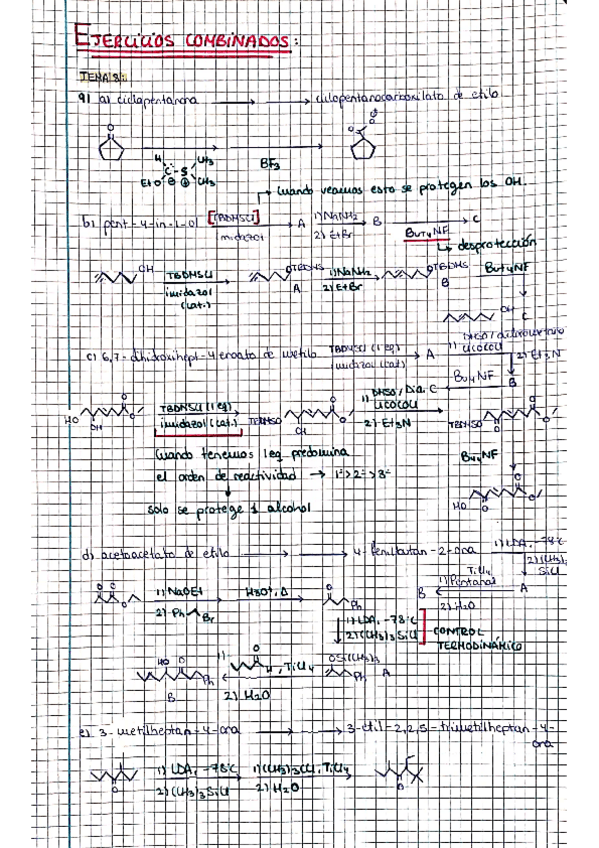 EJERCICIOS COMBINADOS:
TEMA 8:
9) a) ciclopentanona → → ciclopentanocarboxilato de etilo
H
C - S
CH3
EtO ⊖ ⊕ CH3
BF3
↳ Cuando veamos esto se protegen los OH.
b) pent-4-in-1-ol [TBDMSCl] imidazol → A 1) NaNH2 2) EtBr → B Bu4NF → C
↳ desprotección
OH TBDMSCl imidazol (cat.) OTBDMS A 1) NaNH2 2) EtBr OTBDMS B Bu4NF
OH
C
c) 6,7-dihidroxihept-4-enoato de metilo TBDMSCl (1 eq) imidazol (cat.) → A 1) DMSO/diclorometano ClCOCOCl 2) Et3N
B Bu4NF C
HO OH O TBDMSCl (1 eq) imidazol (cat.) TBDMSO OH 1) DMSO/ ClCOCOCl 2) Et3N TBDMSO O
Cuando tenemos 1 eq predomina
el orden de reactividad → 1º>2º>3º
Bu4NF
solo se protege 1 alcohol
HO O
d) acetoacetato de etilo → → 4-fenilbutan-2-ona 1) LDA, -78ºC 2) (CH3)3SiCl
A TiCl4 1) Pentanal 2) H2O B
O O O 1) NaOEt 2) Ph Br H3O+, Δ O Ph
1) LDA, -78ºC
2) (CH3)3SiCl
CONTROL
TERMODINÁMICO
HO O Ph B 1) H, TiCl4 2) H2O OSi(CH3)3 Ph A
e) 3-metilheptan-4-ona → → 3-etil-2,2,5-trimetilheptan-4-ona
O 1) LDA, -78ºC 2) (CH3)3SiCl 1) (CH3)3CCl, TiCl4 2) H2O O